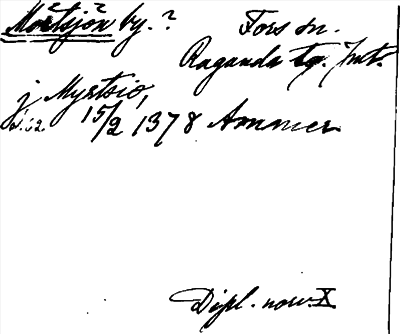 Mörtsjön by.? Fors sn.
Ragunda tg. Jmt.
j Myrtsio,
s. 62 15/2 1378 Ammer
Dipl. norv. X